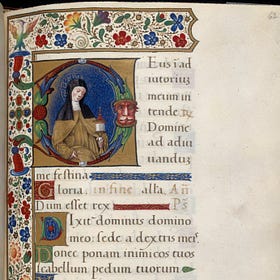 62
DEus ī ad
iutoriuȝ
meum in
tende
Domine
ad adiu
uanduȝ
me festina:
Gloria. in fine alla. Añ
Dum esset rex Ps̄
DIxit dominus domino
meo: sede a dextris meis
Donec ponam inimicos tuos
scabellum pedum tuorum